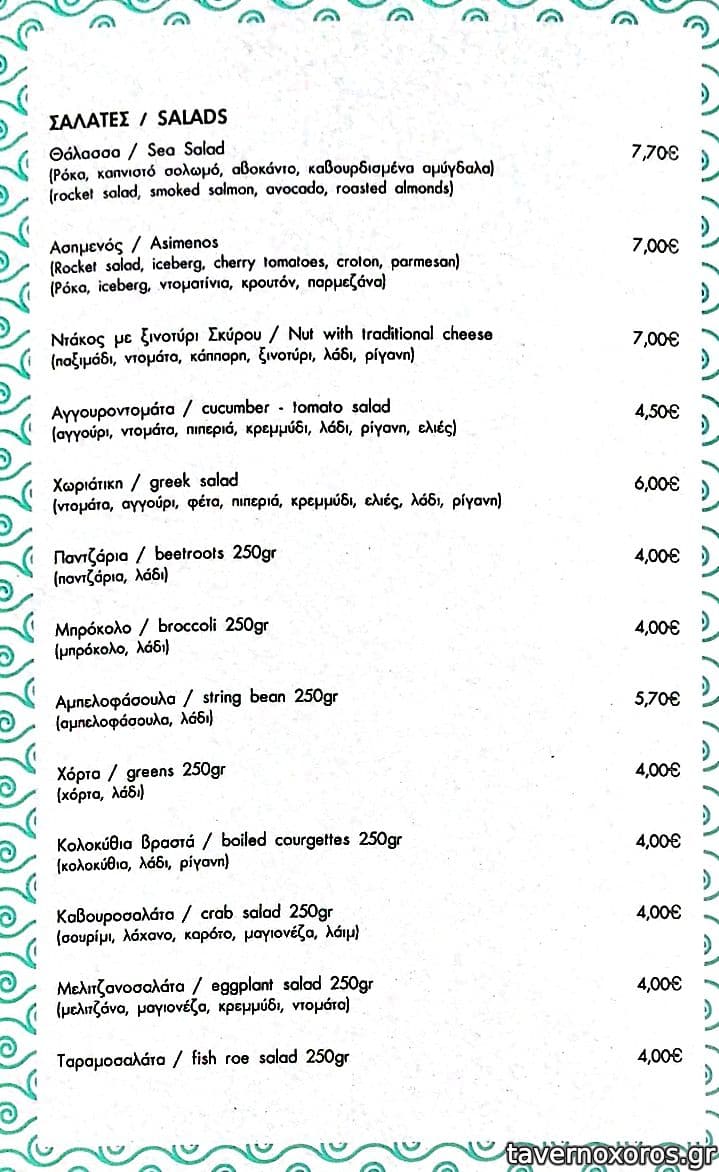 ΣΑΛΑΤΕΣ / SALADS
Θάλασσα / Sea Salad 7,70€
(Ρόκα, καπνιστό σολωμό, αβοκάντο, καβουρδισμένα αμύγδαλα)
(rocket salad, smoked salmon, avocado, roasted almonds)
Ασημενός / Asimenos 7,00€
(Rocket salad, iceberg, cherry tomatoes, croton, parmesan)
(Ρόκα, iceberg, ντοματίνια, κρουτόν, παρμεζάνα)
Ντάκος με ξινοτύρι Σκύρου / Nut with traditional cheese 7,00€
(παξιμάδι, ντομάτα, κάππαρη, ξινοτύρι, λάδι, ρίγανη)
Αγγουροντομάτα / cucumber - tomato salad 4,50€
(αγγούρι, ντομάτα, πιπεριά, κρεμμύδι, λάδι, ρίγανη, ελιές)
Χωριάτικη / greek salad 6,00€
(ντομάτα, αγγούρι, φέτα, πιπεριά, κρεμμύδι, ελιές, λάδι, ρίγανη)
Παντζάρια / beetroots 250gr 4,00€
(παντζάρια, λάδι)
Μπρόκολο / broccoli 250gr 4,00€
(μπρόκολο, λάδι)
Αμπελοφάσουλα / string bean 250gr 5,70€
(αμπελοφάσουλα, λάδι)
Χόρτα / greens 250gr 4,00€
(χόρτα, λάδι)
Κολοκύθια βραστά / boiled courgettes 250gr 4,00€
(κολοκύθια, λάδι, ρίγανη)
Καβουροσαλάτα / crab salad 250gr 4,00€
(σουρίμι, λάχανο, καρότο, μαγιονέζα, λάιμ)
Μελιτζανοσαλάτα / eggplant salad 250gr 4,00€
(μελιτζάνα, μαγιονέζα, κρεμμύδι, ντομάτα)
Ταραμοσαλάτα / fish roe salad 250gr 4,00€
tavernoxoros.gr